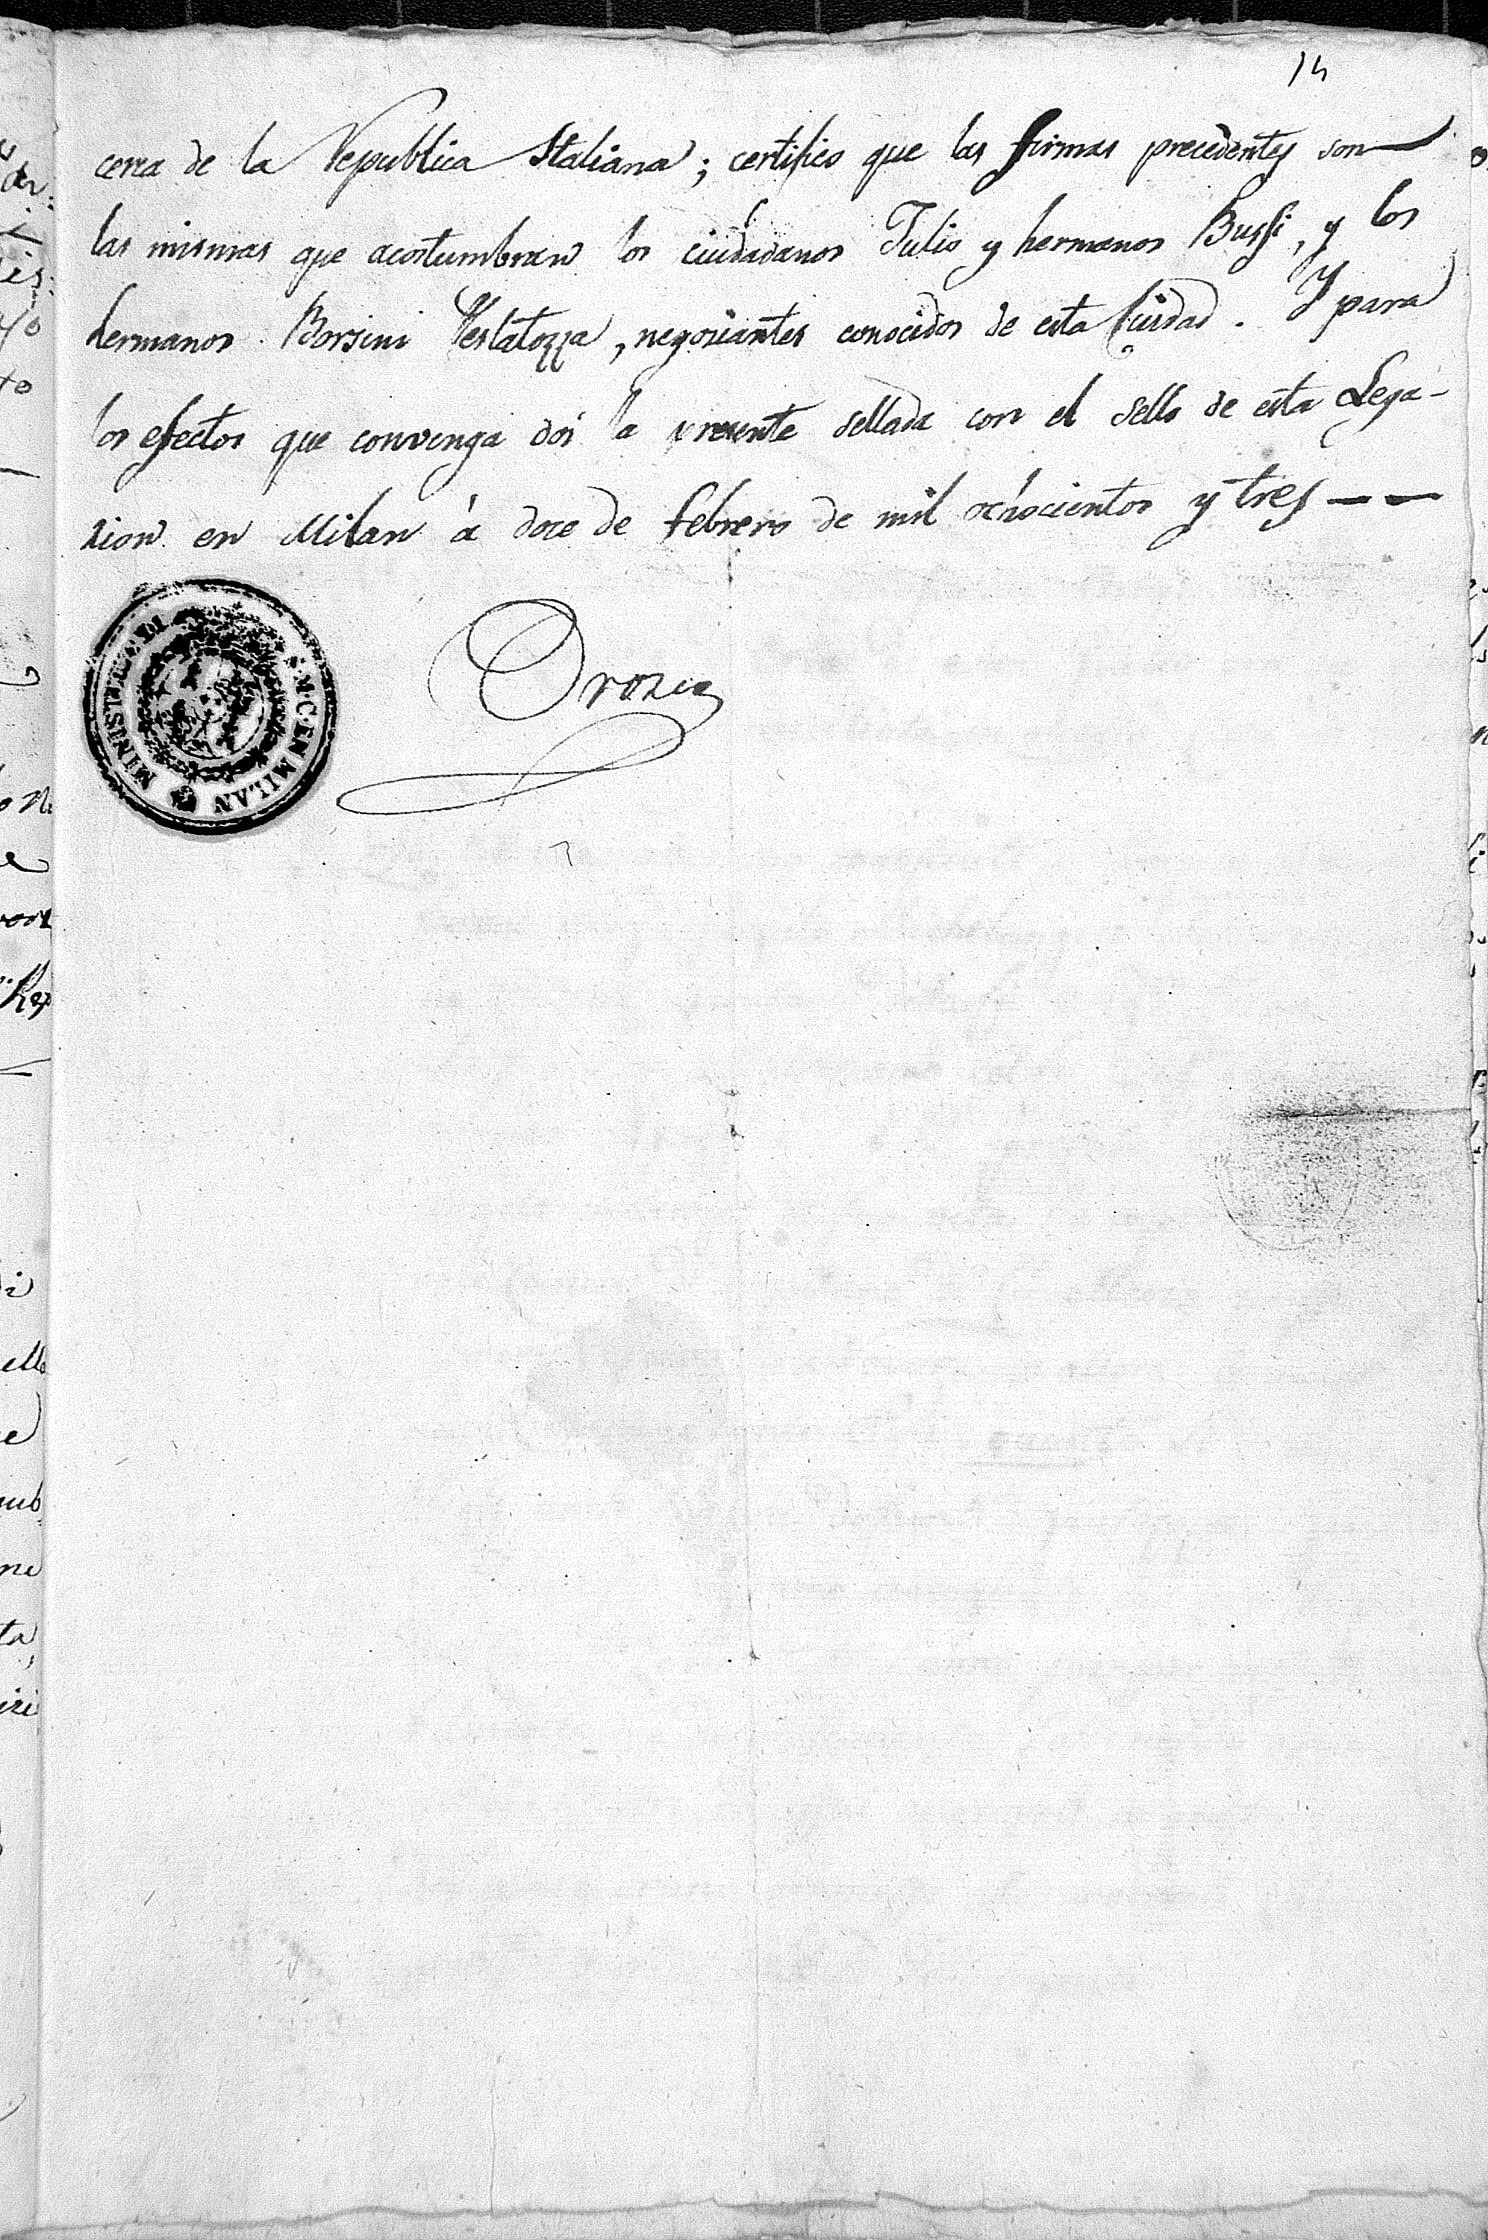 14
cerca de la Republica Italiana; certifico que las firmas precedentes son
las mismas que acostumbran los ciudadanos Tulio y hermanos Bussi, y los
hermanos Borsini Vestatozza, negoziantes conocidos de esta Ciudad. Y para
los efectos que convenga doi la presente sellada con el sello de esta Lega-
zion en Milan á doce de febrero de mil ochocientos y tres
MINISTERIO DI S.M.C. EN MILAN
Orozco